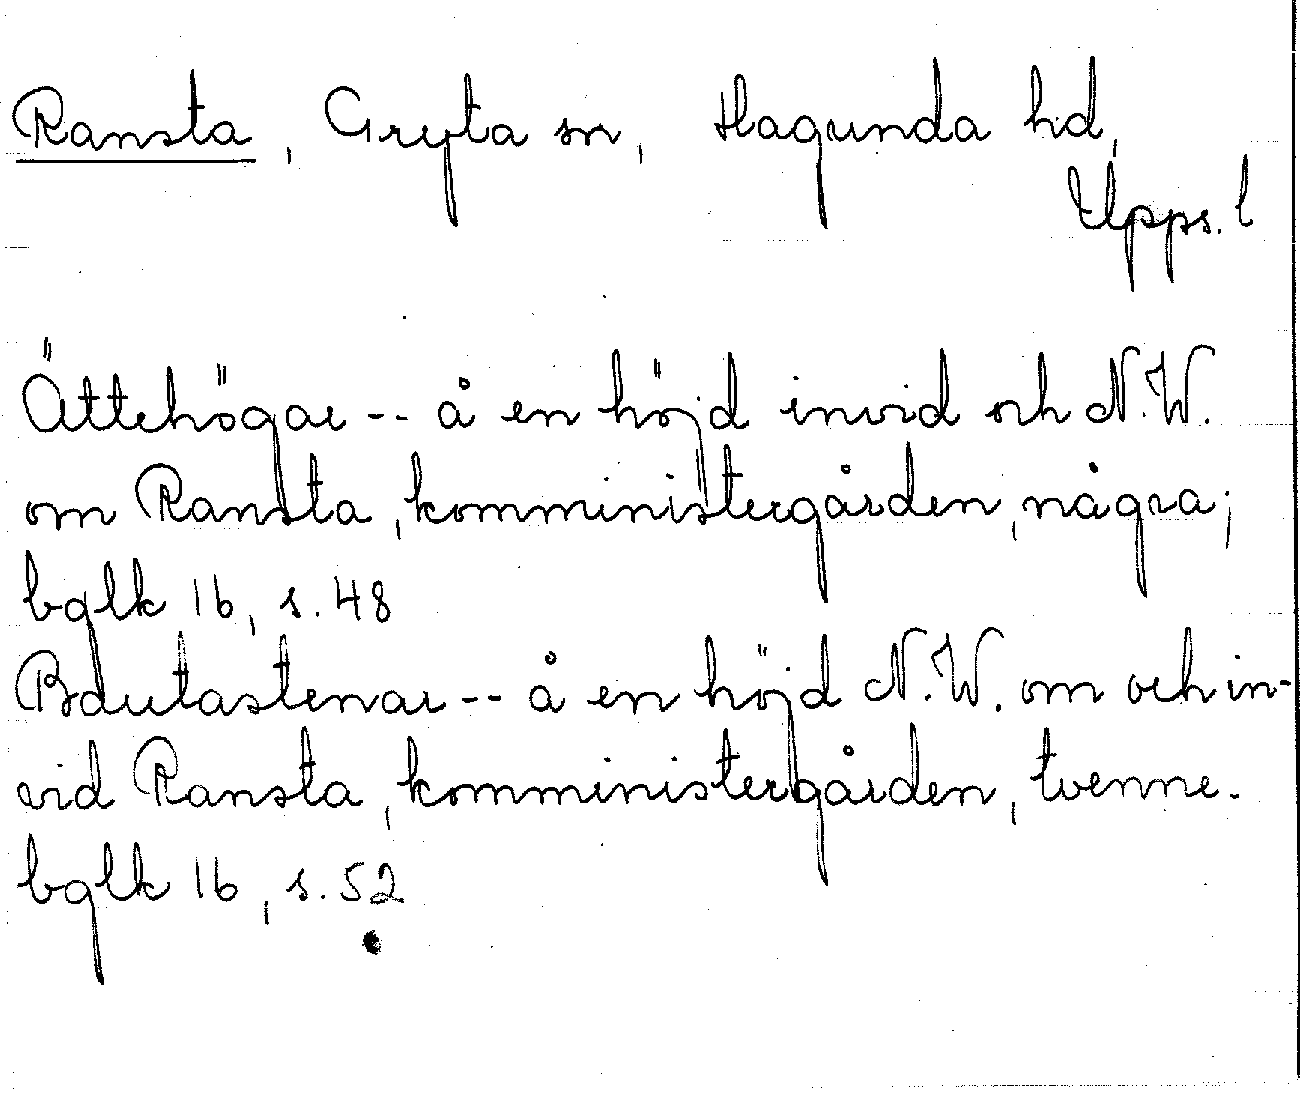 Ransta, Gryta sn, Hagunda hd,
Upps. l
Ättehögar -- å en höjd invid och N.W.
om Ransta, komministergården, några;
bglk 16, s. 48
Bautastenar -- å en höjd N.W. om och in-
vid Ransta, komministergården, tvenne.
bglk 16, s. 52